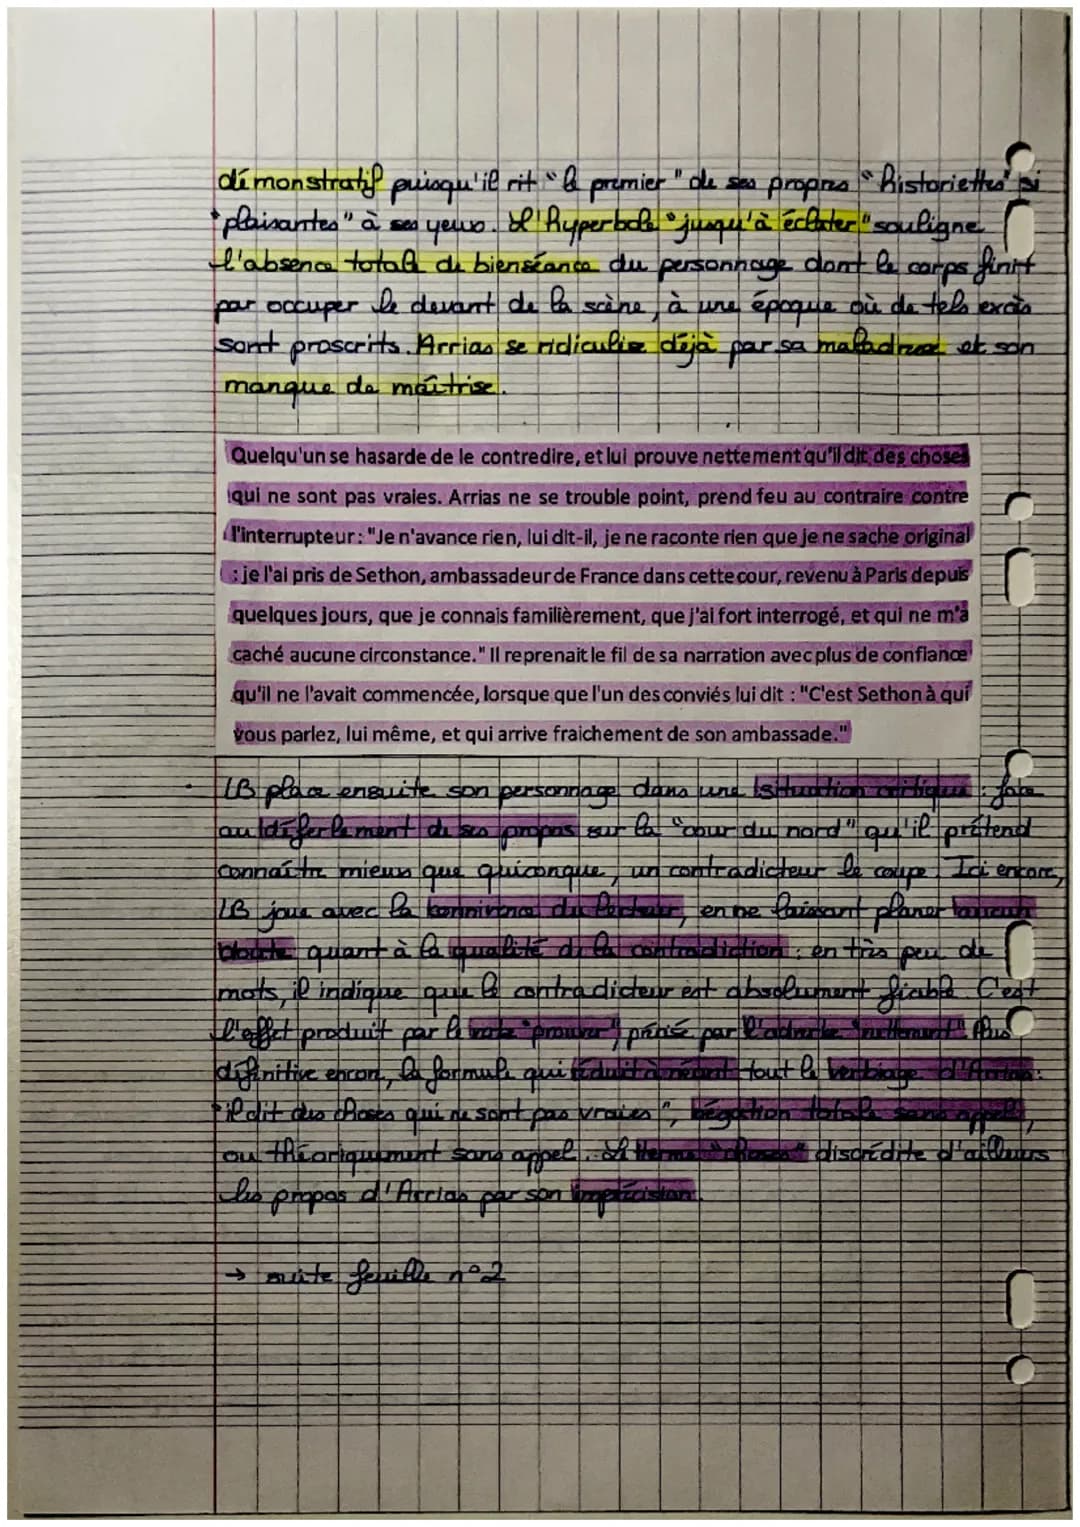 démonstratif puisqu'il rit "le premier" de ses propres "historiettes" si
"plaisantes" à ses yeux. L'hyperbole "jusqu'à éclater" souligne
l'absence totale de bienséance du personnage dont le corps finit
par occuper le devant de la scène, à une époque où de tels excès
sont proscrits. Arrias se ridiculise déjà par sa maladresse et son
manque de maîtrise.
Quelqu'un se hasarde de le contredire, et lui prouve nettement qu'il dit des choses
qui ne sont pas vraies. Arrias ne se trouble point, prend feu au contraire contre
l'interrupteur : "Je n'avance rien, lui dit-il, je ne raconte rien que je ne sache original
: je l'ai pris de Sethon, ambassadeur de France dans cette cour, revenu à Paris depuis
quelques jours, que je connais familièrement, que j'ai fort interrogé, et qui ne m'a
caché aucune circonstance." Il reprenait le fil de sa narration avec plus de confiance
qu'il ne l'avait commencée, lorsque que l'un des conviés lui dit : "C'est Sethon à qui
vous parlez, lui même, et qui arrive fraichement de son ambassade."
LB place ensuite son personnage dans une situation critique : face
au déferlement de ses propos sur la "cour du nord" qu'il prétend
connaître mieux que quiconque, un contradicteur le coupe. Ici encore,
LB joue avec la connivence du lecteur, en ne laissant planer aucun
doute quant à la qualité de la contradiction : en très peu de
mots, il indique que le contradicteur est absolument fiable. C'est
l'effet produit par le verbe "prouver", précisé par l'adverbe "nettement". Plus
définitive encore, la formule qui réduit à néant tout le verbiage d'Arrias :
"il dit des choses qui ne sont pas vraies", négation totale sans appel,
ou théoriquement sans appel. Le terme "choses" discrédite d'ailleurs
les propos d'Arrias par son imprécision.
→ suite feuille n°2